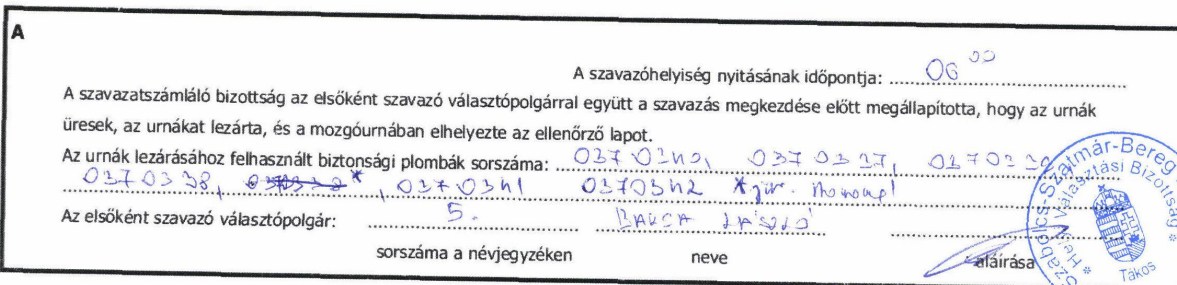 A
A szavazóhelyiség nyitásának időpontja: 06 00
A szavazatszámláló bizottság az elsőként szavazó választópolgárral együtt a szavazás megkezdése előtt megállapította, hogy az urnák
üresek, az urnákat lezárta, és a mozgóurnában elhelyezte az ellenőrző lapot.
Az urnák lezárásához felhasznált biztonsági plombák sorszáma: 0370340, 0370337,
0370338, 0370341 0370342
Az elsőként szavazó választópolgár: 5. LÁSZLÓ
sorszáma a névjegyzéken neve aláírása
Szabolcs-Szatmár-Bereg
Helyi Választási Bizottság
Tákos